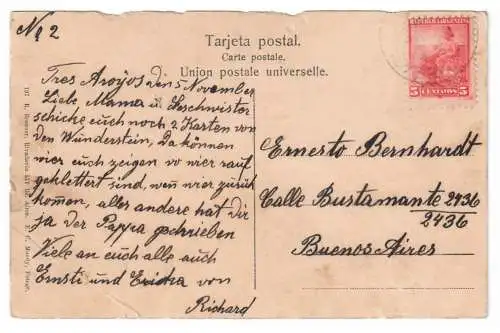 No 2
Tarjeta postal.
Carte postale.
Union postale universelle.
REPUBLICA ARGENTINA
5 CENTAVOS 5
Tres Aroyos den 5 November
Liebe Mama u. Geschwister
schicke euch noch 2 Karten von
den Wunderstein, Da können
wier euch zeigen wo wier rauf
geklettert sind, wen wier zurük
kommen, alles andere hat Dir
ja der Pappa geschrieben
Viele an euch alle auch
Ernsti und Ericka von
Richard
Ernesto Bernhardt
Calle Bustamante 2436
2436
Buenos Aires